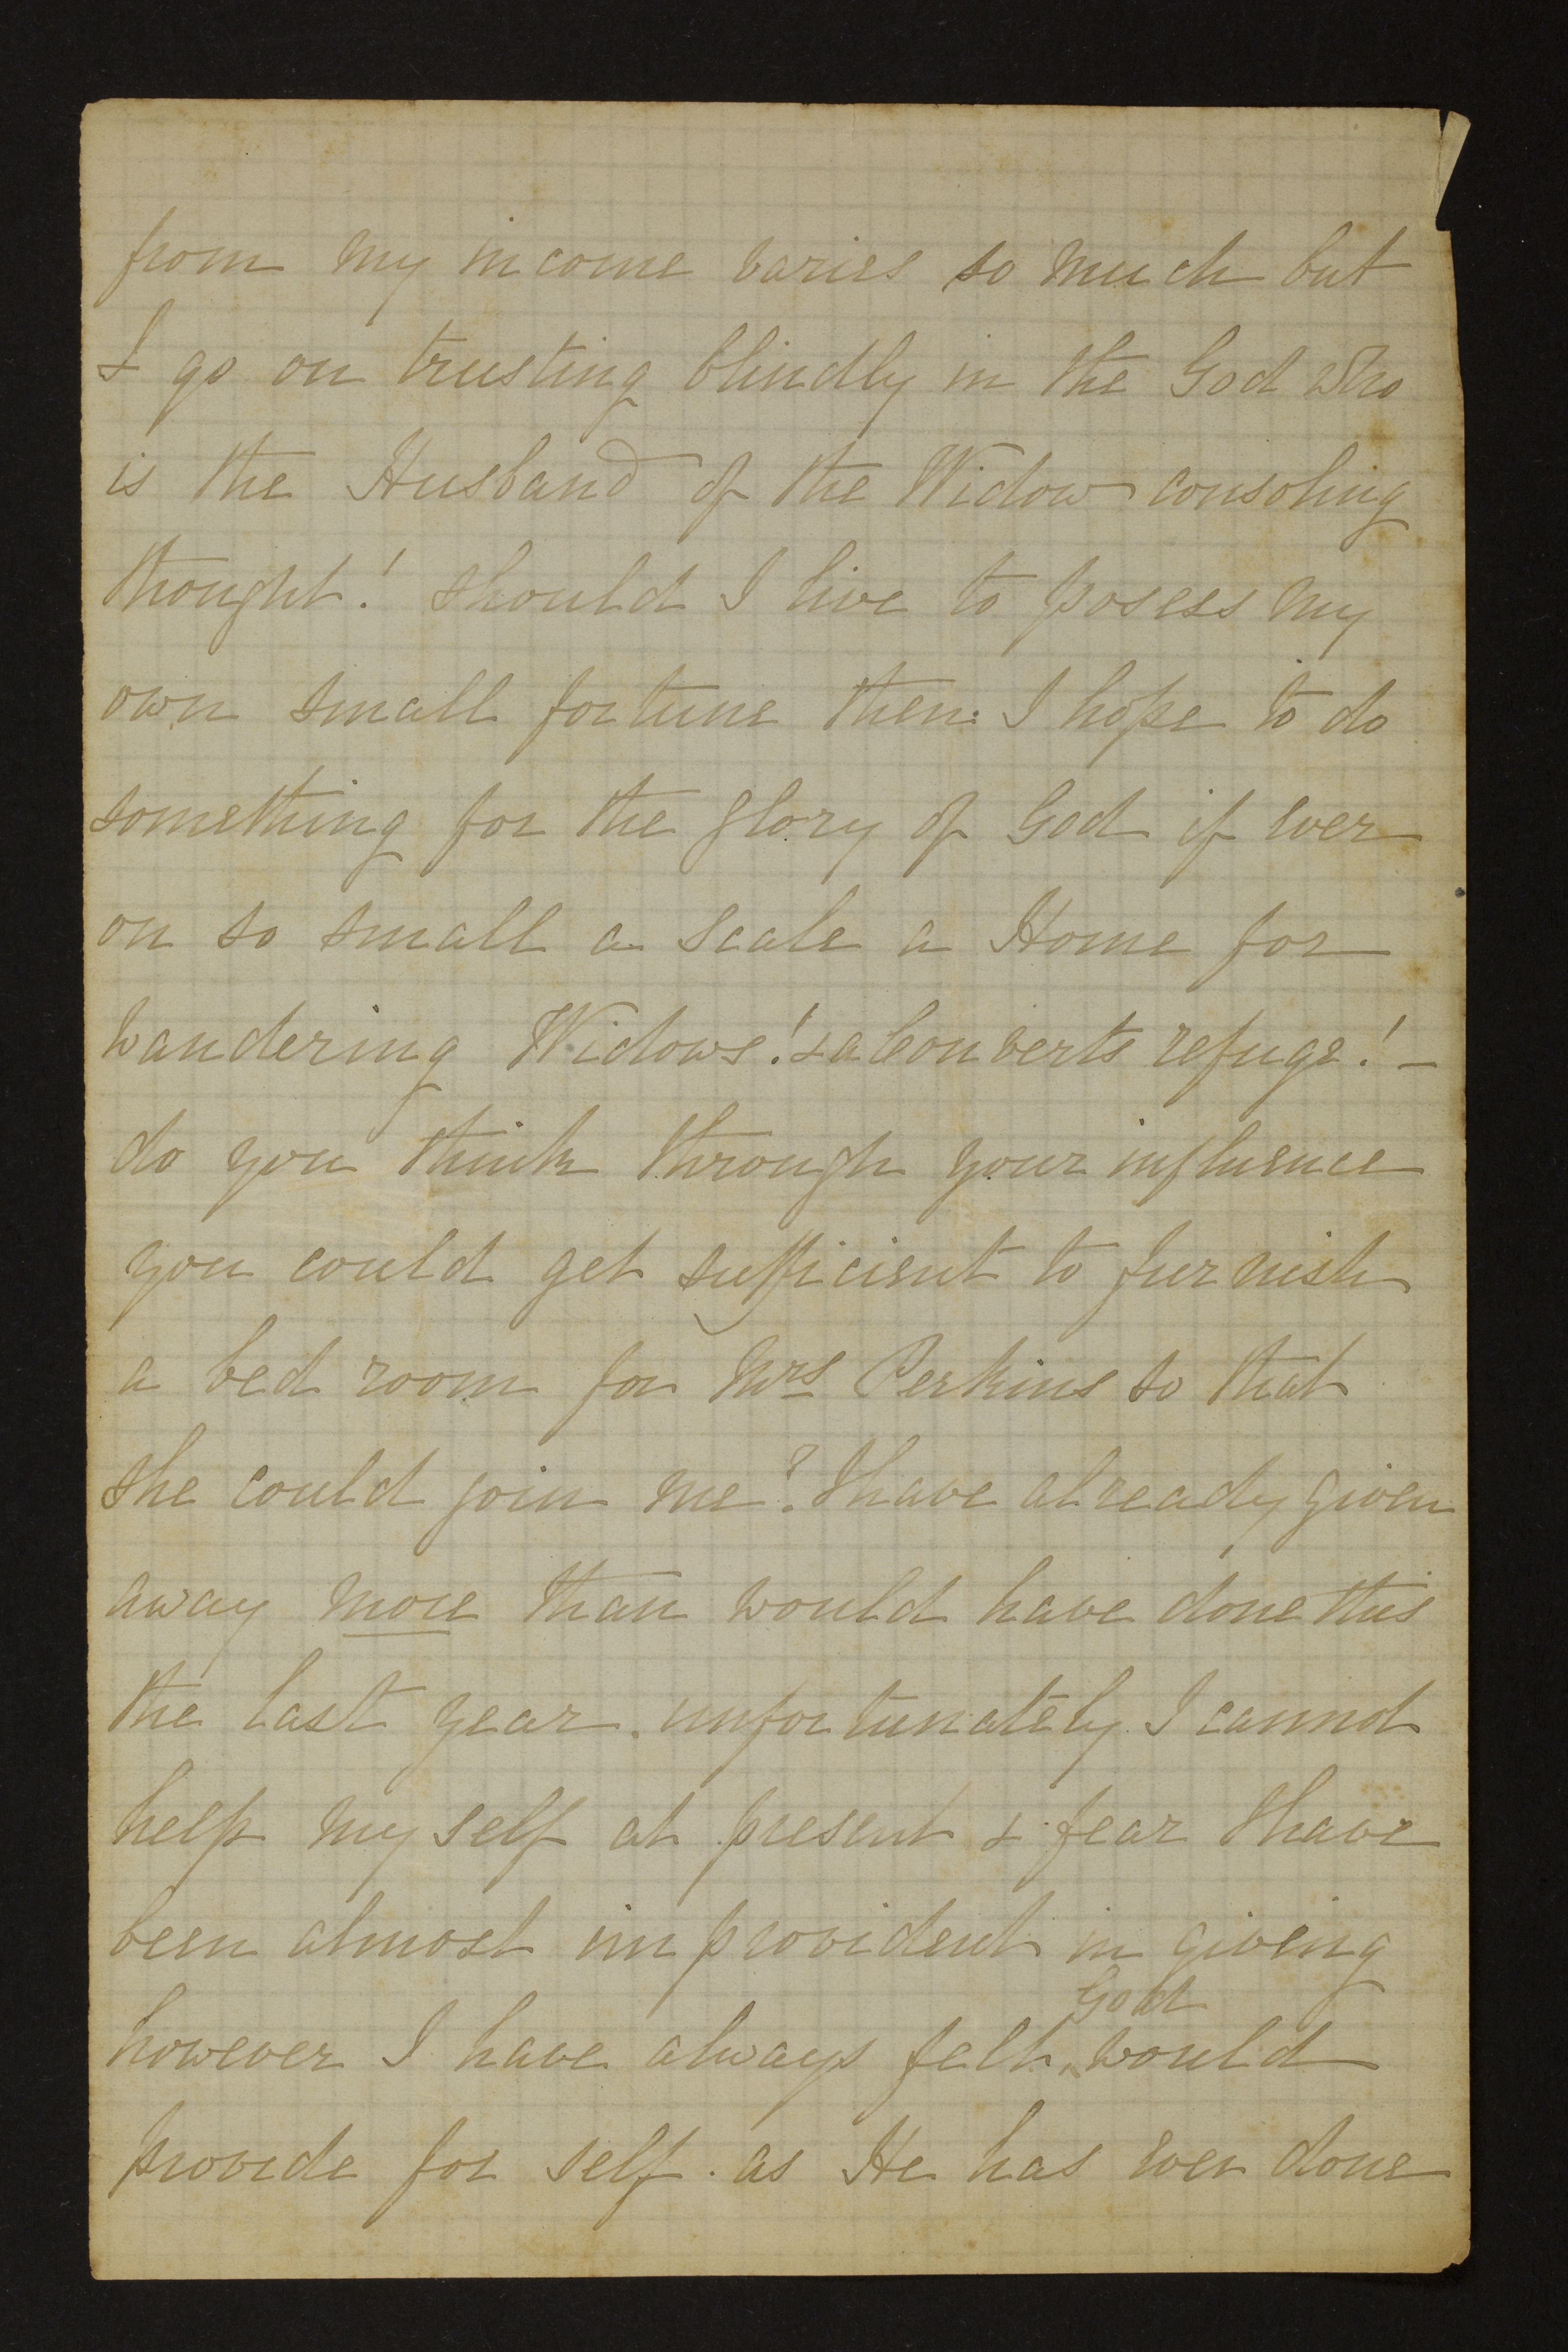 from my income varies so much but
I go on trusting blindly in the God who
is the Husband of the Widow consoling
thought! should I live to posess my
own small fortune then. I hope to do
something for the glory of God if ever
on so small a scale a Home for
wandering Widows! & a Converts refuge! –
do you think through your influence
you could get sufficient to furnish
a bed room for Mrs Perkins so that
she could join me? I have already given
away more than would have done this
the last year. unfortunately I cannot
help my self at present & fear I have
been almost improvident in giving
however I have always felt God would
provide for self. as He has ever done